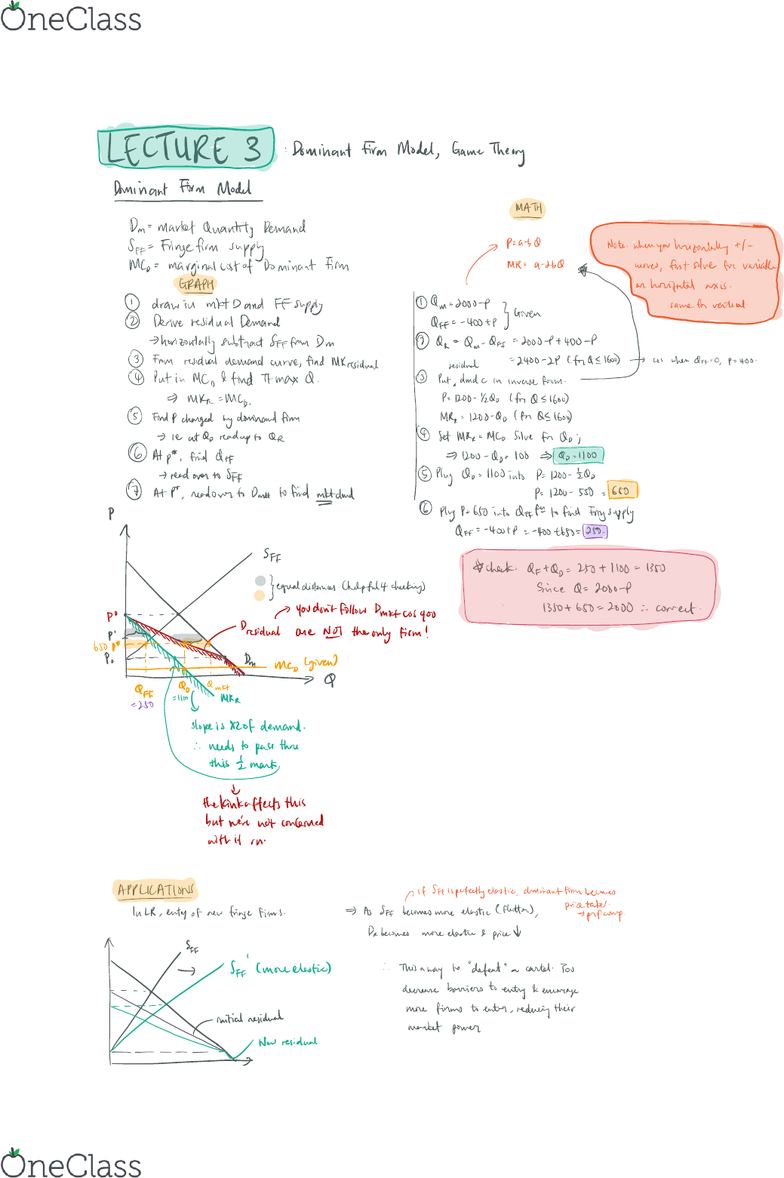 OneClass
LECTURE 3 : Dominant Firm Model, Game Theory
Dominant Firm Model
Dm = market Quantity Demand
SFF = Fringe firm supply
MCD = marginal cost of Dominant Firm
GRAPH
① draw in mkt D and FF supply
② Derive residual Demand
→ horizontally subtract SFF from Dm
③ From residual demand curve, find MRresidual
④ Put in MCD & find πmax Q.
⇒ MRR = MCD.
⑤ Find P charged by dominant firm
→ ie at QD read up to QR
⑥ At P*, find QFF
→ read over to SFF
⑦ At P*, read over to Dmkt to find mkt dmd
MATH
P=a-bQ
MR= a-2bQ
Note: when you horizontally +/-
curves, first solve for variable
on horizontal axis.
same for vertical
① Qm = 2000-P
QFF = -400+P } Given
② QR = Qm - QFF = 2000-P+400-P
= 2400-2P (for Q≤1600) → cos when QFF=0, P=400.
residual
③ Put dmd c in inverse form.
P=1200-½QD (for Q≤1600)
MRR = 1200-QD (for Q≤1600)
④ Set MRR = MCD Solve for QD;
⇒ 1200-QD = 100 ⇒ QD=1100
⑤ Plug QD=1100 into P=1200-½QD
P=1200-550 = 650
⑥ Plug P=650 into QFF to find Fring supply
QFF = -400+P = -400+650 = 250.
*check: QF+QD = 250+1100 = 1350
Since Q = 2000-P
1350+650=2000 ∴ correct.
P
SFF
} equal distances (helpful 4 checking)
Dresidual
→ you don't follow Dmkt cos you
are NOT the only firm!
P°
P'
650 P*
P₀
Dm
MCD (given)
Q
QFF
=250
QD
=1100
Qmkt
MRR
slope is x2 of demand.
∴ needs to pass thru
this ½ mark
the kink affects this
but we're not concerned
with it rn.
APPLICATIONS
In LR, entry of new fringe firms.
SFF
SFF' (more elastic)
initial residual
New residual
→ if SFF is perfectly elastic, dominant firm becomes
price taker
→ perf comp
⇒ As SFF becomes more elastic (flatter),
DR becomes more elastic & price ↓
∴ This a way to "defeat" a cartel.
decrease barriers to entry & encourage
more firms to enter, reducing their
market power
OneClass